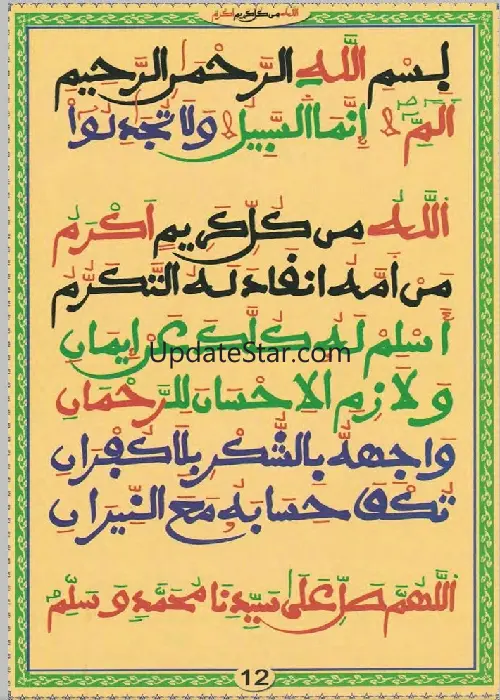 اللَّه من كل كريم اكرم
بِسْمِ اللَّهِ الرَّحْمٰنِ الرَّحِيمِ
الٓمٓ إِنَّمَا السَّبِيلُ وَلَا تُجَدِلُوٓاْ
اَللَّه مِن كُلِّ كَرِيمٍ اَكْرَمُ
مَنْ اَمَّهُ انقَادَ لَهُ التَّكَرُّمُ
أَسْلِمْ لَهُ كَذَٰلِكَ إِيمَانِ
UpdateStar.com
وَلَازِمِ الِاحْسَانَ لِلرَّحْمَانِ
وَاجِهْهُ بِالشُّكْرِ بِلَا كُفْرَانِ
تُكْفَ حِسَابَهُ مَعَ النِّيرَانِ
اَللَّهُمَّ صَلِّ عَلَى سَيِّدِنَا مُحَمَّدٍ وَسَلِّمْ
12